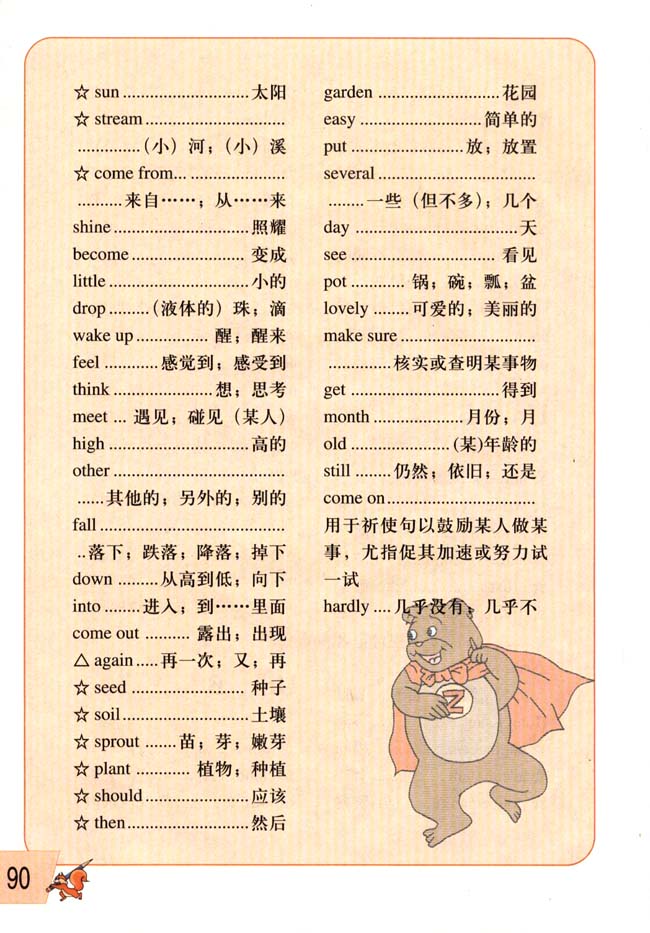 ☆ sun ............................ 太阳
☆ stream ...............................
..............(小)河；(小)溪
☆ come from... .....................
..........来自……；从……来
shine .............................. 照耀
become ......................... 变成
little ............................... 小的
drop .........(液体的)珠；滴
wake up ................ 醒；醒来
feel ............ 感觉到；感受到
think ...................... 想；思考
meet ... 遇见；碰见（某人）
high ............................... 高的
other ......................................
......其他的；另外的；别的
fall .........................................
..落下；跌落；降落；掉下
down .........从高到低；向下
into ........进入；到……里面
come out .......... 露出；出现
△ again ..... 再一次；又；再
☆ seed ......................... 种子
☆ soil ............................ 土壤
☆ sprout ....... 苗；芽；嫩芽
☆ plant ............ 植物；种植
☆ should ....................... 应该
☆ then ........................... 然后
garden ........................... 花园
easy ........................... 简单的
put ......................... 放；放置
several ...................................
........一些（但不多）；几个
day .................................... 天
see ................................ 看见
pot ............ 锅；碗；瓢；盆
lovely ........ 可爱的；美丽的
make sure ..............................
..............核实或查明某事物
get ................................. 得到
month .................... 月份；月
old .......................(某)年龄的
still ........ 仍然；依旧；还是
come on .................................
用于祈使句以鼓励某人做某
事，尤指促其加速或努力试
一试
hardly .... 几乎没有；几乎不
Z
90